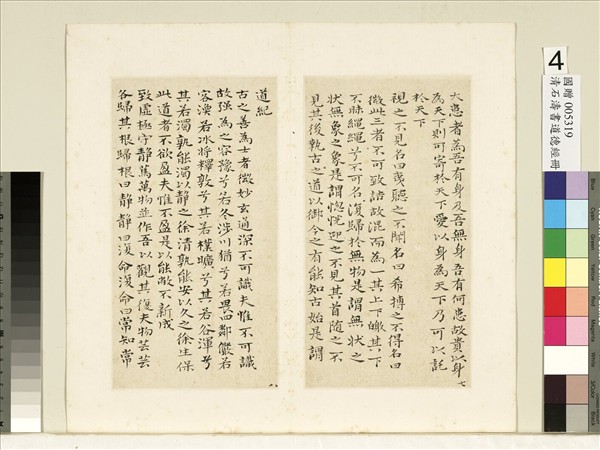 大患者為吾有身及吾無身吾有何患故貴以身
為天下則可寄於天下愛以身為天下乃可以託
於天下
視之不見名曰夷聽之不聞名曰希搏之不得名曰
微此三者不可致詰故混而為一其上不皦其下
不昧繩繩兮不可名復歸於無物是謂無狀之
狀無象之象是謂惚恍迎之不見其首隨之不
見其後執古之道以御今之有能知古始是謂
七
道紀
古之善為士者微妙玄通深不可識夫惟不可識
故强為之容豫兮若冬涉川猶兮若畏四鄰儼若
客渙若冰將釋敦兮其若樸曠兮其若谷渾兮
其若濁孰能濁以靜之徐清孰能安以久之徐生保
此道者不欲盈夫惟不盈是以能敝不新成
致虛極守靜篤萬物並作吾以觀其復夫物芸芸
各歸其根歸根曰靜靜曰復命復命曰常知常
八
4
國贈 005319
清石濤書道德經冊
Blue
Cyan
Green
Yellow
Red
Magenta
White
3/Color
Black